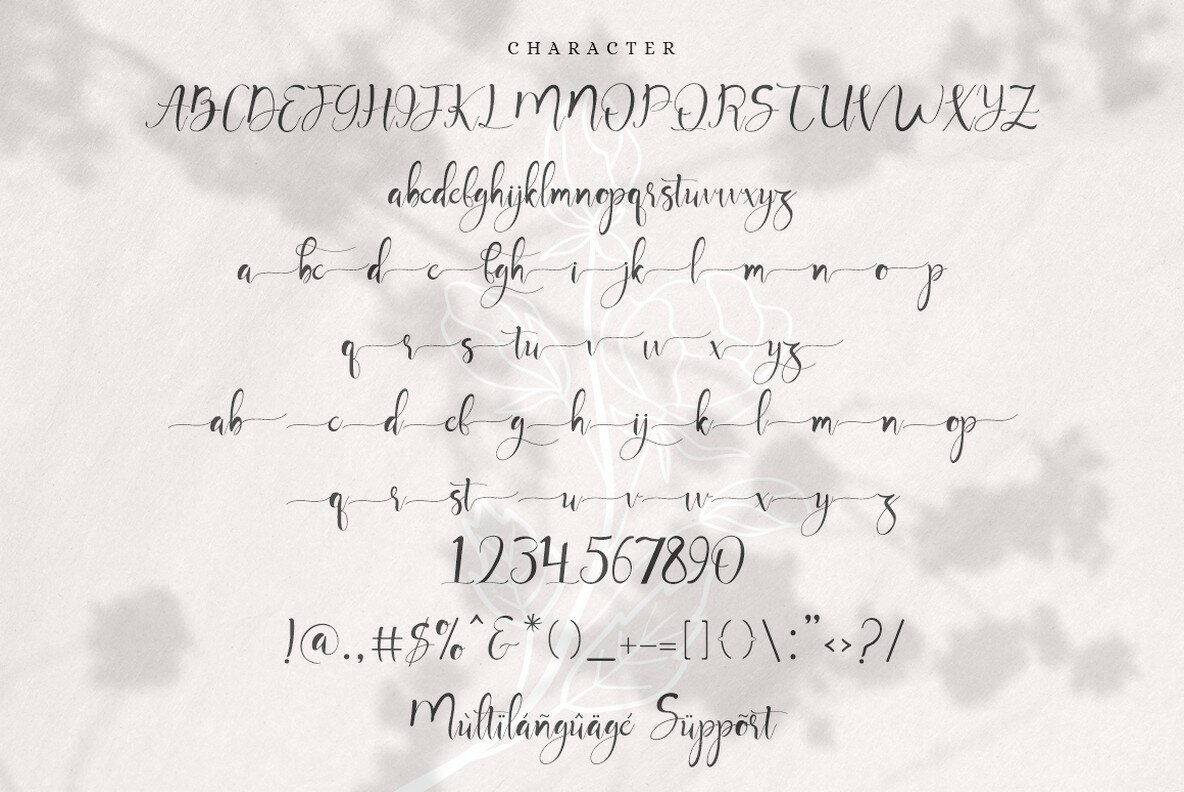 CHARACTER
ABCDEFGHIJKLMNOPQRSTUVWXYZ
abcdefghijklmnopqrstuvwxyz
a bc d e fgh i jk l m n o p
q r s tu v w x yz
ab c d ef g h ij k l m n op
q r st u v w x y z
1234567890
!@.,#$%^&*()_+-=[]{}\:”<>?/
Mùltïláñgûägé Süppõrt